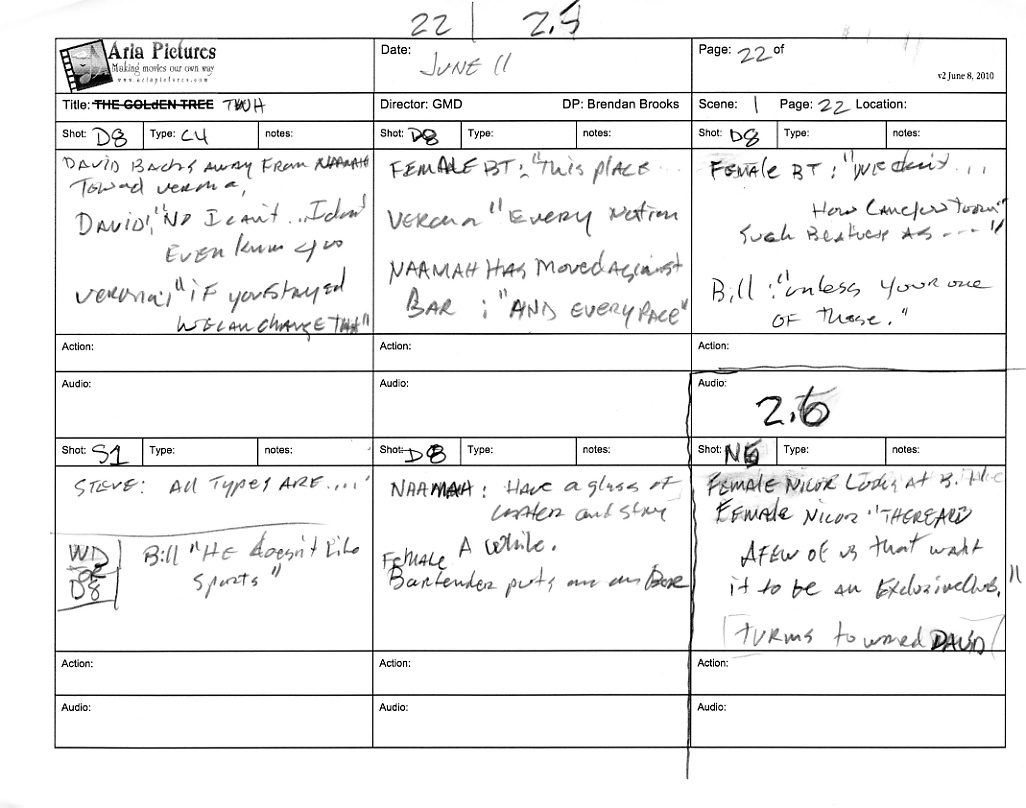 22 | 2.5
Aria Pictures
Making movies our own way
www.ariapictures.com
Date:
JUNE 11
Page: 22 of
v2 June 8, 2010
Title: THE GOLDEN TREE TWH
Director: GMD DP: Brendan Brooks
Scene: 1 Page: 22 Location:
Shot: D8 Type: C4 notes:
DAVID BACKS AWAY FROM NAAMAH
Toward verona,
DAVID: "NO I can't... I don't
EVEN know you
verona: "IF you stayed
WE CAN CHANGE THAT"
Action:
Audio:
Shot: D8 Type: notes:
FEMALE BT: "This place...
VERONA "EVERY Nation
NAAMAH HAS Moved Against
BAR : "AND EVERY RACE"
Action:
Audio:
Shot: D8 Type: notes:
FEMALE BT: "WE don't ...
How Can
Such AS ---"
Bill: "unless your one
OF those."
Action:
Audio:
2.6
Shot: S1 Type: notes:
STEVE: All Types ARE....'
WD
OR
D8
Bill "HE doesn't Like
Sports"
Action:
Audio:
Shot: D8 Type: notes:
NAAMAH: Have a glass of
water and stay
A While.
FEMALE
Bartender puts one on Bar
Action:
Audio:
Shot: N5 Type: notes:
FEMALE NICOR Looks At B.
FEMALE NICOR "THERE ARE
A FEW OF US that want
it to be an Exclusive Club."
TURNS toward DAVID
Action:
Audio: